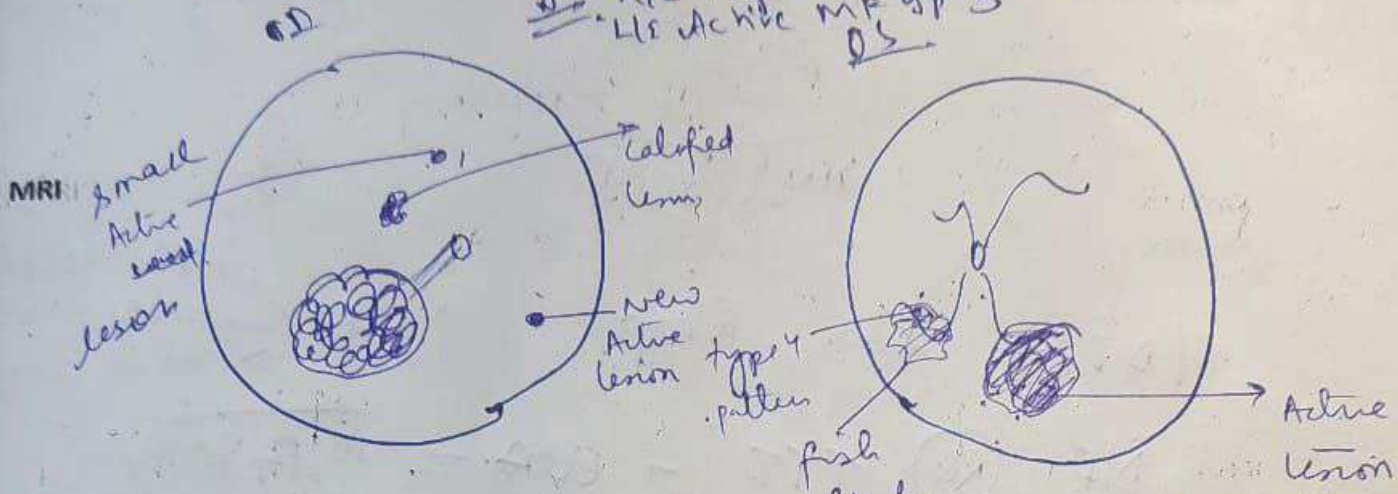 OD
L/E Active
OS
MRI
small
Active
lesion
Calcified
New
Active
lesion
type 4
pattern
fish
Active
lesion